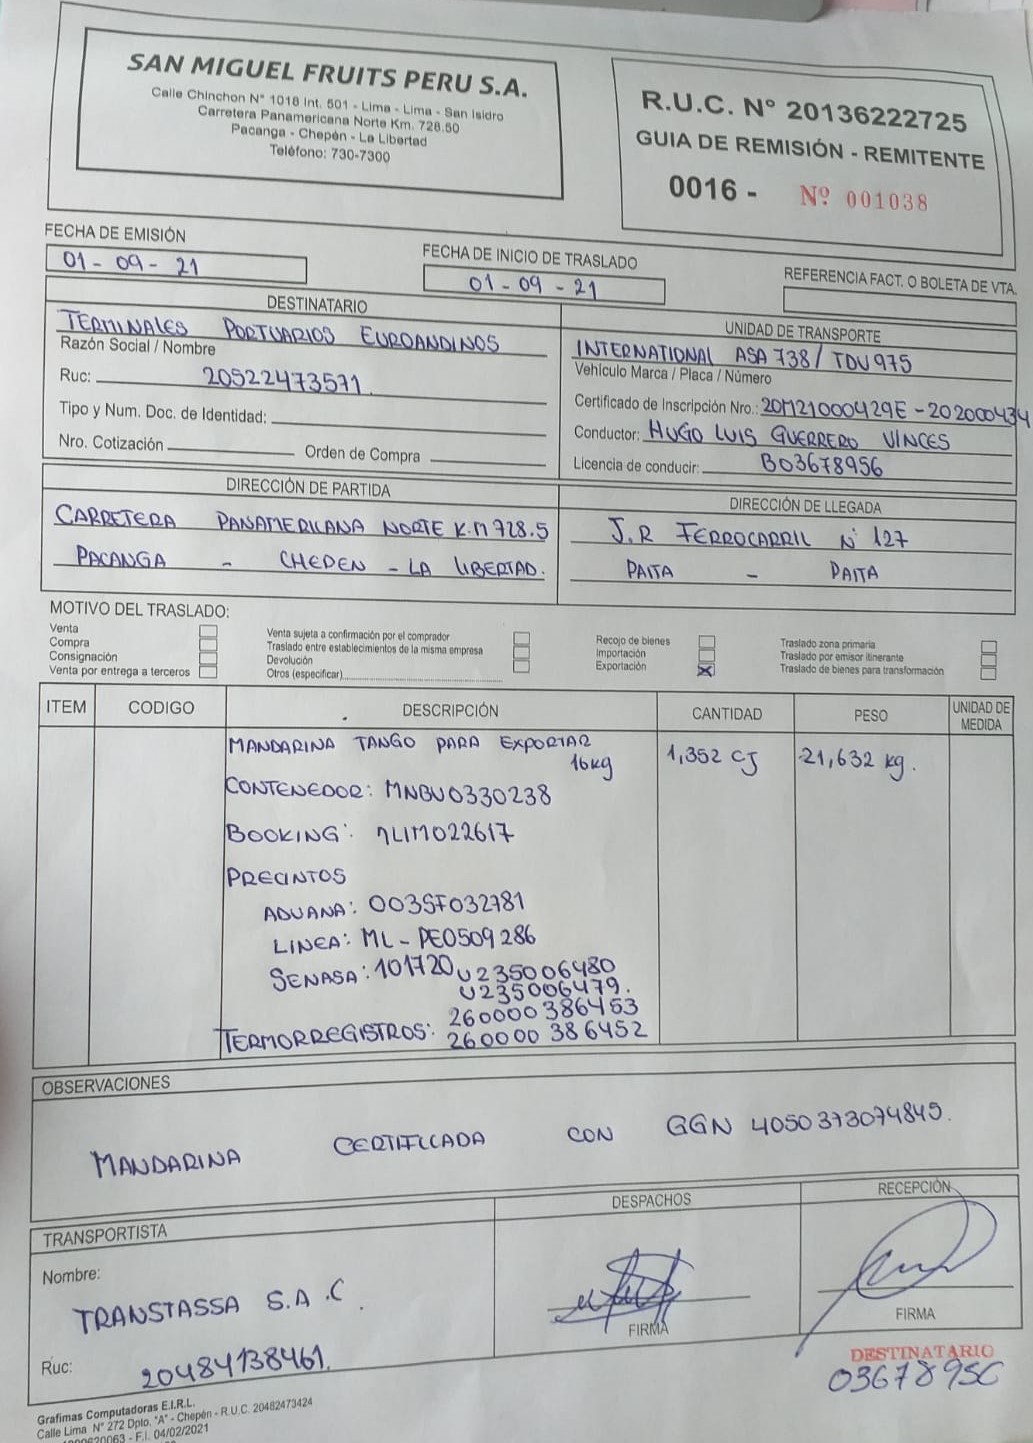 SAN MIGUEL FRUITS PERU S.A.
Calle Chinchon N° 1018 Int. 501 - Lima - Lima - San Isidro
Carretera Panamericana Norte Km. 728.50
Pacanga - Chepén - La Libertad
Teléfono: 730-7300
R.U.C. N° 20136222725
GUIA DE REMISIÓN - REMITENTE
0016 - Nº 001038
FECHA DE EMISIÓN
01 - 09 - 21
FECHA DE INICIO DE TRASLADO
01 - 09 - 21
REFERENCIA FACT. O BOLETA DE VTA.
DESTINATARIO
TERMINALES PORTUARIOS EUROANDINOS
Razón Social / Nombre
Ruc: 20522473571
Tipo y Num. Doc. de Identidad:
Nro. Cotización Orden de Compra
UNIDAD DE TRANSPORTE
INTERNATIONAL ASA 738 / TDU 975
Vehículo Marca / Placa / Número
Certificado de Inscripción Nro.: 20M21000429E - 202000434
Conductor: HUGO LUIS GUERRERO VINCES
Licencia de conducir: B03678956
DIRECCIÓN DE PARTIDA
CARRETERA PANAMERICANA NORTE K.M 728.5
PACANGA - CHEPEN - LA LIBERTAD.
DIRECCIÓN DE LLEGADA
J.R FERROCARRIL N° 127
PAITA - PAITA
MOTIVO DEL TRASLADO:
Venta
Compra
Consignación
Venta por entrega a terceros
Venta sujeta a confirmación por el comprador
Traslado entre establecimientos de la misma empresa
Devolución
Otros (especificar)
Recojo de bienes
Importación
Exportación X
Traslado zona primaria
Traslado por emisor itinerante
Traslado de bienes para transformación
ITEM CODIGO DESCRIPCIÓN CANTIDAD PESO UNIDAD DE MEDIDA
MANDARINA TANGO PARA EXPORTAR
16kg 1,352 CJ 21,632 kg.
CONTENEDOR: MNBU0330238
BOOKING: 7LIM022617
PRECINTOS
ADUANA: 003SF032781
LINEA: ML - PE0509286
SENASA: 101720 U235006480
U235006479.
260000386453
TERMORREGISTROS: 260000386452
OBSERVACIONES
MANDARINA CERTIFICADA CON GGN 4050373074849.
TRANSPORTISTA
Nombre:
TRANSTASSA S.A.C.
Ruc: 20484138461.
DESPACHOS
FIRMA
RECEPCIÓN
FIRMA
DESTINATARIO
03678956
Grafimas Computadoras E.I.R.L.
Calle Lima N° 272 Dpto. "A" - Chepén - R.U.C. 20482473424
F.I. 04/02/2021